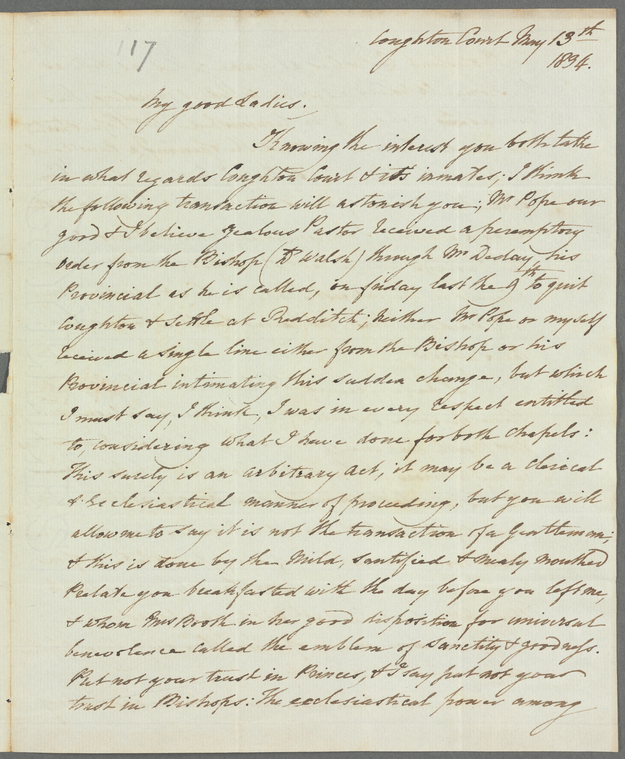 117
Coughton Court May 13th
1834.
My good Ladies.
Knowing the interest you both take
in what regards Coughton Court & its inmates; I think
the following transaction will astonish you; Mr Pope our
good & I believe zealous Pastor received a peremptory
order from the Bishop (Dr Walsh) through Mr Deday, his
Provincial as he is called, on friday last the 9th to quit
Coughton & settle at Redditch; Neither Mr Pope or myself
received a single line either from the Bishop or his
Provincial intimating this sudden change, but which
I must say, I think, I was in every respect entitled
to, considering what I have done for both Chapels:
This surely is an arbitrary act, it may be a clerical
& Ecclesiastical manner of proceeding, but you will
allow me to say it is not the transaction of a Gentleman;
& this is done by the Mild, santified & mealy mouthed
Prelate you breakfasted with the day before you left me,
& whom Mrs Brook in her good disposition for universal
benevolence called the emblem of sanctity & goodness.
Put not your trust in Princes, & I say put not your
trust in Bishops: The ecclesiastical power among